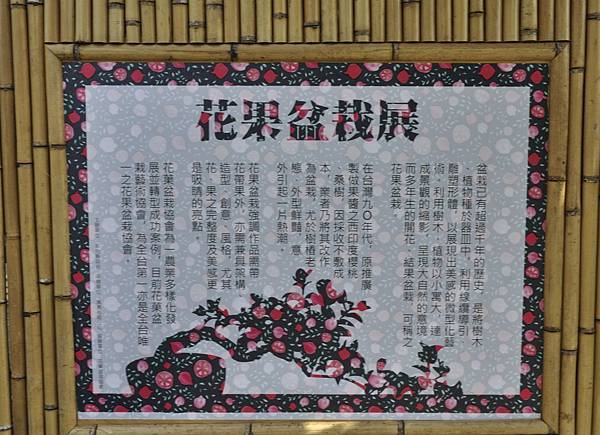 花果盆栽展
盆栽已有超過千年的歷史，是將樹木
、植物種於器皿中，利用線纜導引、
雕塑形體，以展現出美感的微型化藝
術。利用樹木、植物以小寓大、達
成景觀的縮影，呈現大自然的意境
而多年生的開花、結果盆栽，可稱之
花果盆栽。
在台灣九０年代，原推廣
製做果醬之西印度櫻桃
、桑樹，因採收不敷成
本，業者乃將其改作
為盆栽，尤於樹樁老
態、外型鮮豔，意
外引起一片熱潮。
花果盆栽強調作品需帶
花帶果外，亦需兼具架構、
造型、創意、風格，尤其
花、果之完整度及美感更
是吸睛的亮點。
花菓盆栽協會為一農業多樣化發
展並轉型成功案例，目前花菓盆
栽藝術協會，為全台第一亦是全台唯
一之花果盆栽協會。